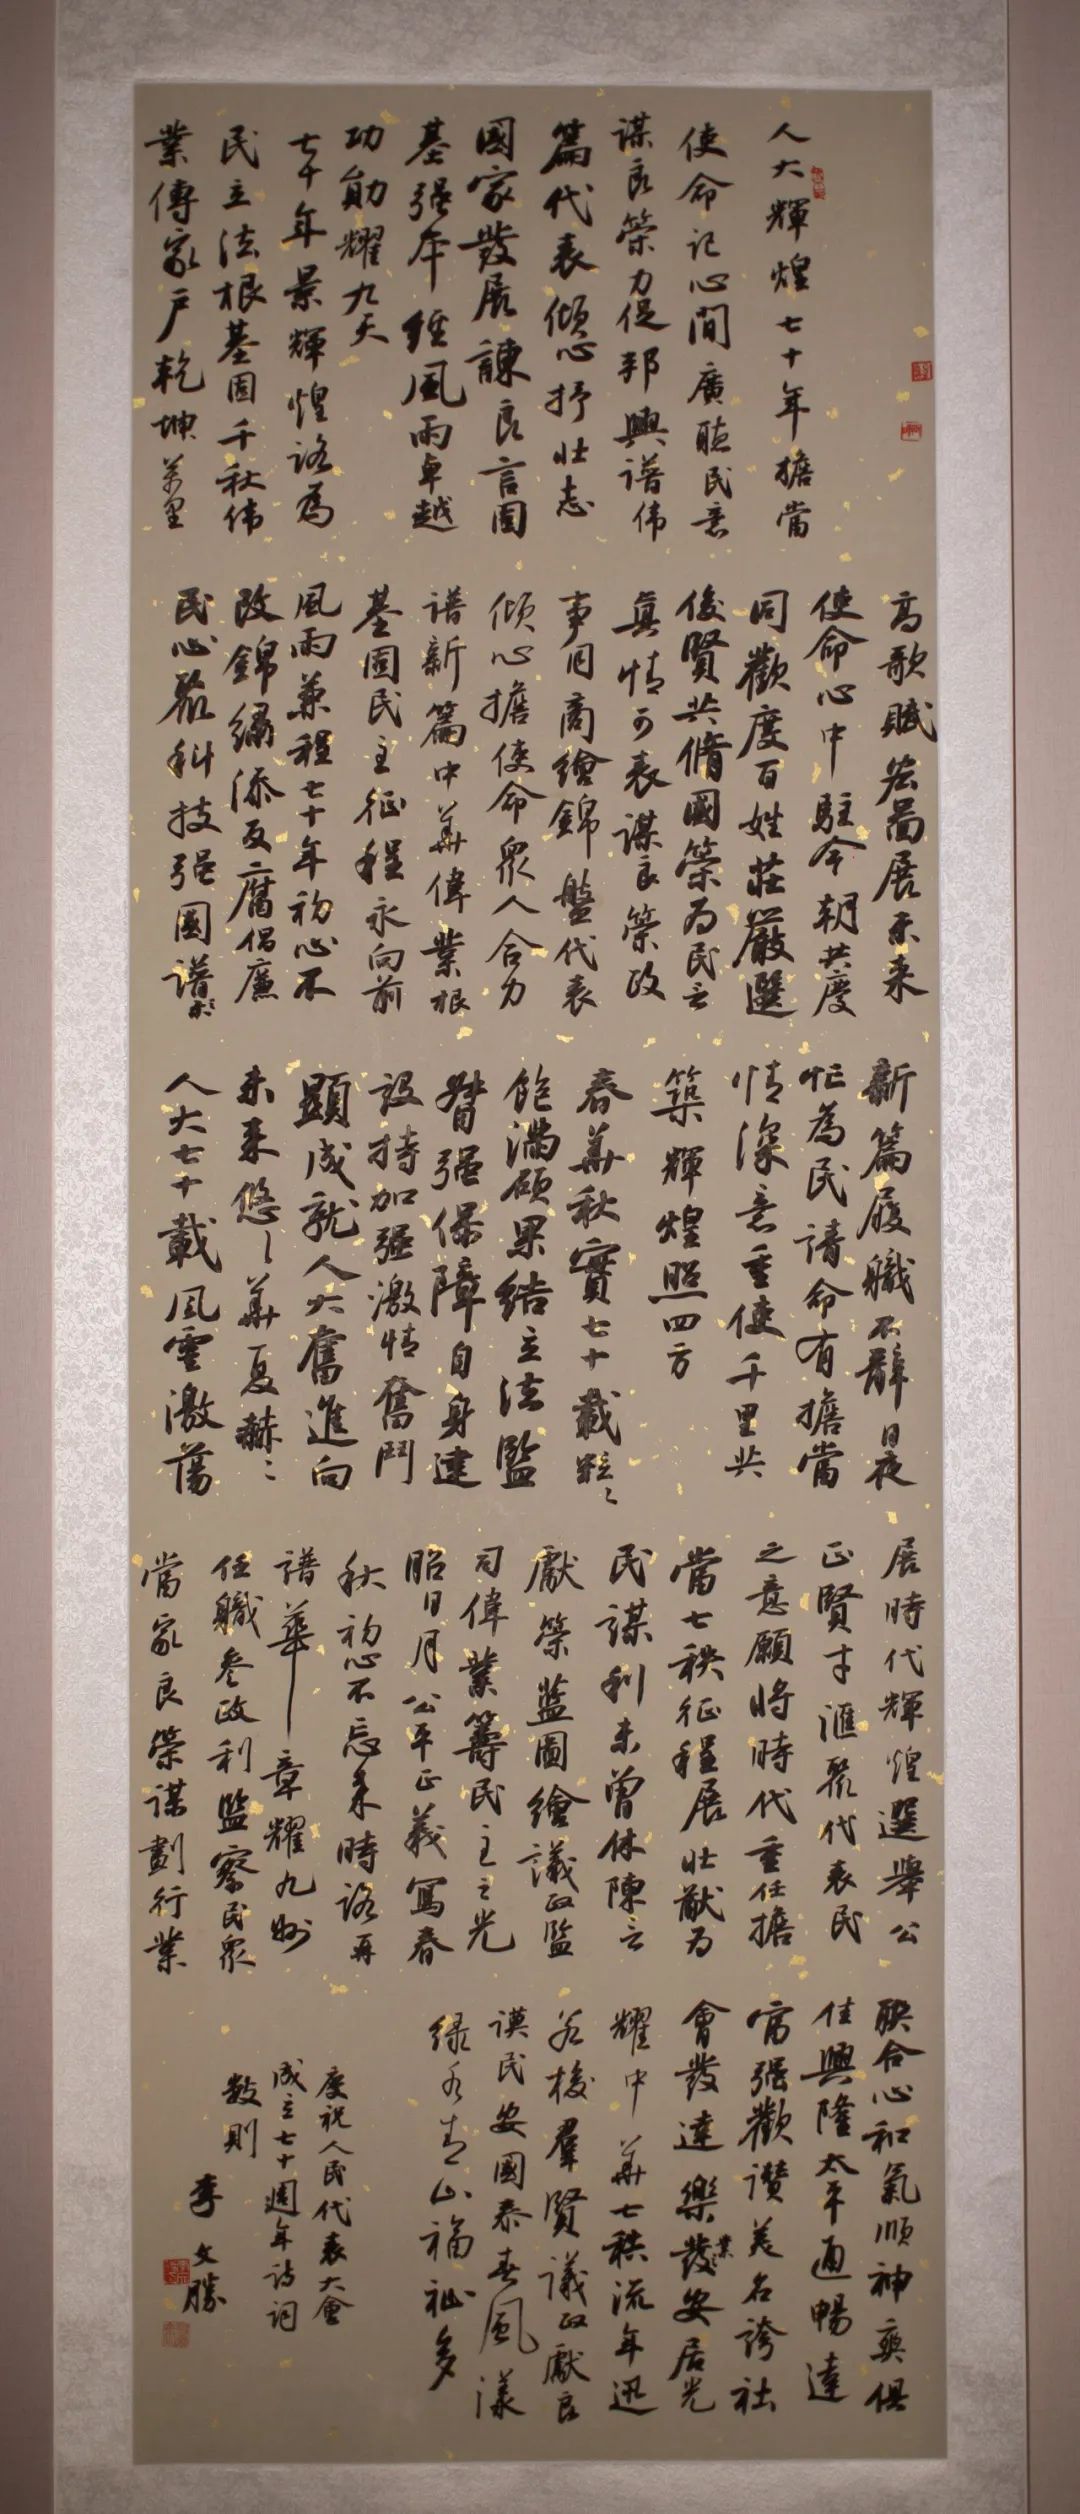 人大輝煌七十年擔當
使命記心間廣聽民意
謀良策力促邦興譜伟
篇代表傾心抒壮志
國家發展諫良言固
基强本經風雨卓越
功勛耀九天
七十年景輝煌路為
民立法根基固千秋伟
業傳家戶乾坤萬里
高歌賦宏圖展未来
使命心中駐今朝共慶
同歡度百姓莊嚴選
後賢共脩國策为民言
真情可表謀良策政
事同商繪錦盤代表
傾心擔使命眾人合力
譜新篇中華偉業根
基固民主征程永向前
風雨兼程七十年初心不
改錦繡添反腐倡廉
民心聚科技强國譜
新篇履職不辭日夜
忙為民請命有擔當
情深意重使千里共
築輝煌照四方
春華秋實七十載粒々
飽满碩果结立法監
督强保障自身建
設持加强激情奮鬥
顯成就人大奮進向
未来悠々華夏赫々
人大七十載風雲激蕩
展時代輝煌選舉公
正賢才滙聚代表民
之意願将時代重任擔
當七秩征程展壮猷为
民謀利未曾休陳言
獻策藍圖繪議政監
司偉業籌民主之光
昭日月公平正義寫春
秋初心不忘来時路再
譜華章耀九州
任職叁政利監察民眾
當家良策謀劃行業
联合心和氣順神爽俱
佳興隆太平通暢達
富强歡讚美名誇社
會發達樂業發安居光
耀中華七秩流年迅
若梭羣賢議政獻良
謨民安國泰春風漾
绿水青山福祉多
慶祝人民代表大會
成立七十週年诗词
数則
李文勝